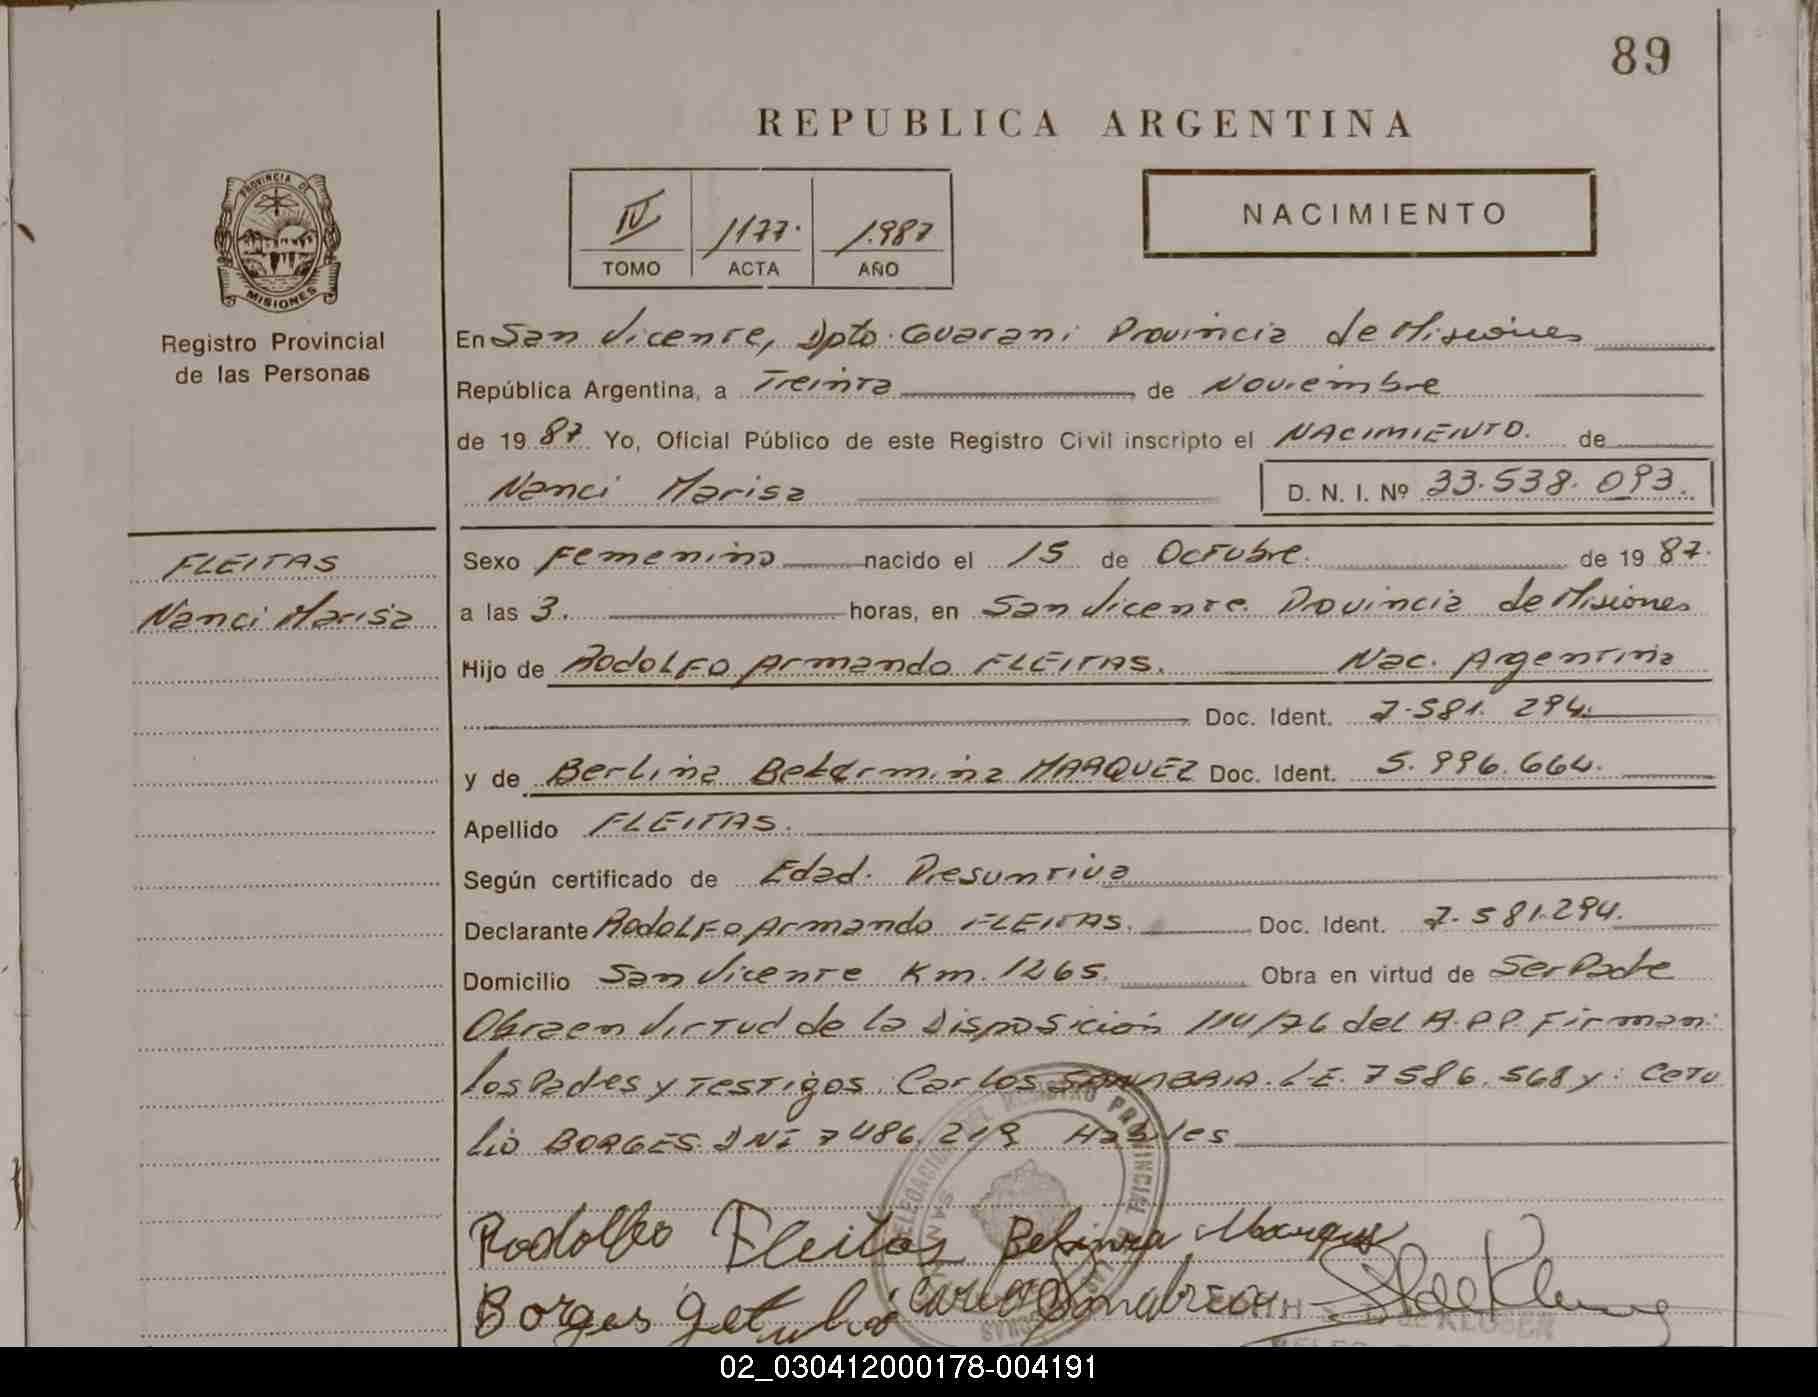 89
REPUBLICA ARGENTINA
PROVINCIA DE
MISIONES
Registro Provincial
de las Personas
IV 1177. 1.987
TOMO ACTA AÑO
NACIMIENTO
En San Vicente, Dpto. Guarani Provincia de Misiones
República Argentina, a Treinta de Noviembre
de 19 87 Yo, Oficial Público de este Registro Civil inscripto el NACIMIENTO. de
Nanci Marisa D. N. I. Nº 33.538.093.
FLEITAS
Nanci Marisa
Sexo Femenino nacido el 15 de Octubre. de 19 87.
a las 3. horas, en San Vicente Provincia de Misiones
Hijo de Rodolfo Armando FLEITAS. Nac. Argentina
Doc. Ident. 7.581.294.
y de Berlina Belarmina MARQUEZ Doc. Ident. 5.996.664.
Apellido FLEITAS.
Según certificado de Edad. Presuntiva
Declarante Rodolfo Armando FLEITAS. Doc. Ident. 7.581.294.
Domicilio San Vicente Km. 1265. Obra en virtud de Ser Padre
Obra en Virtud de la Disposición 114/76 del R.P.P. Firman:
los Padres y Testigos. Carlos L.E. 7586.568 y: Getu
lio BORGES. DNI 7486.219 Habiles
Rodolfo Fleitas Marques
Borges Getulio Carlos
de KLUSER
02_030412000178-004191